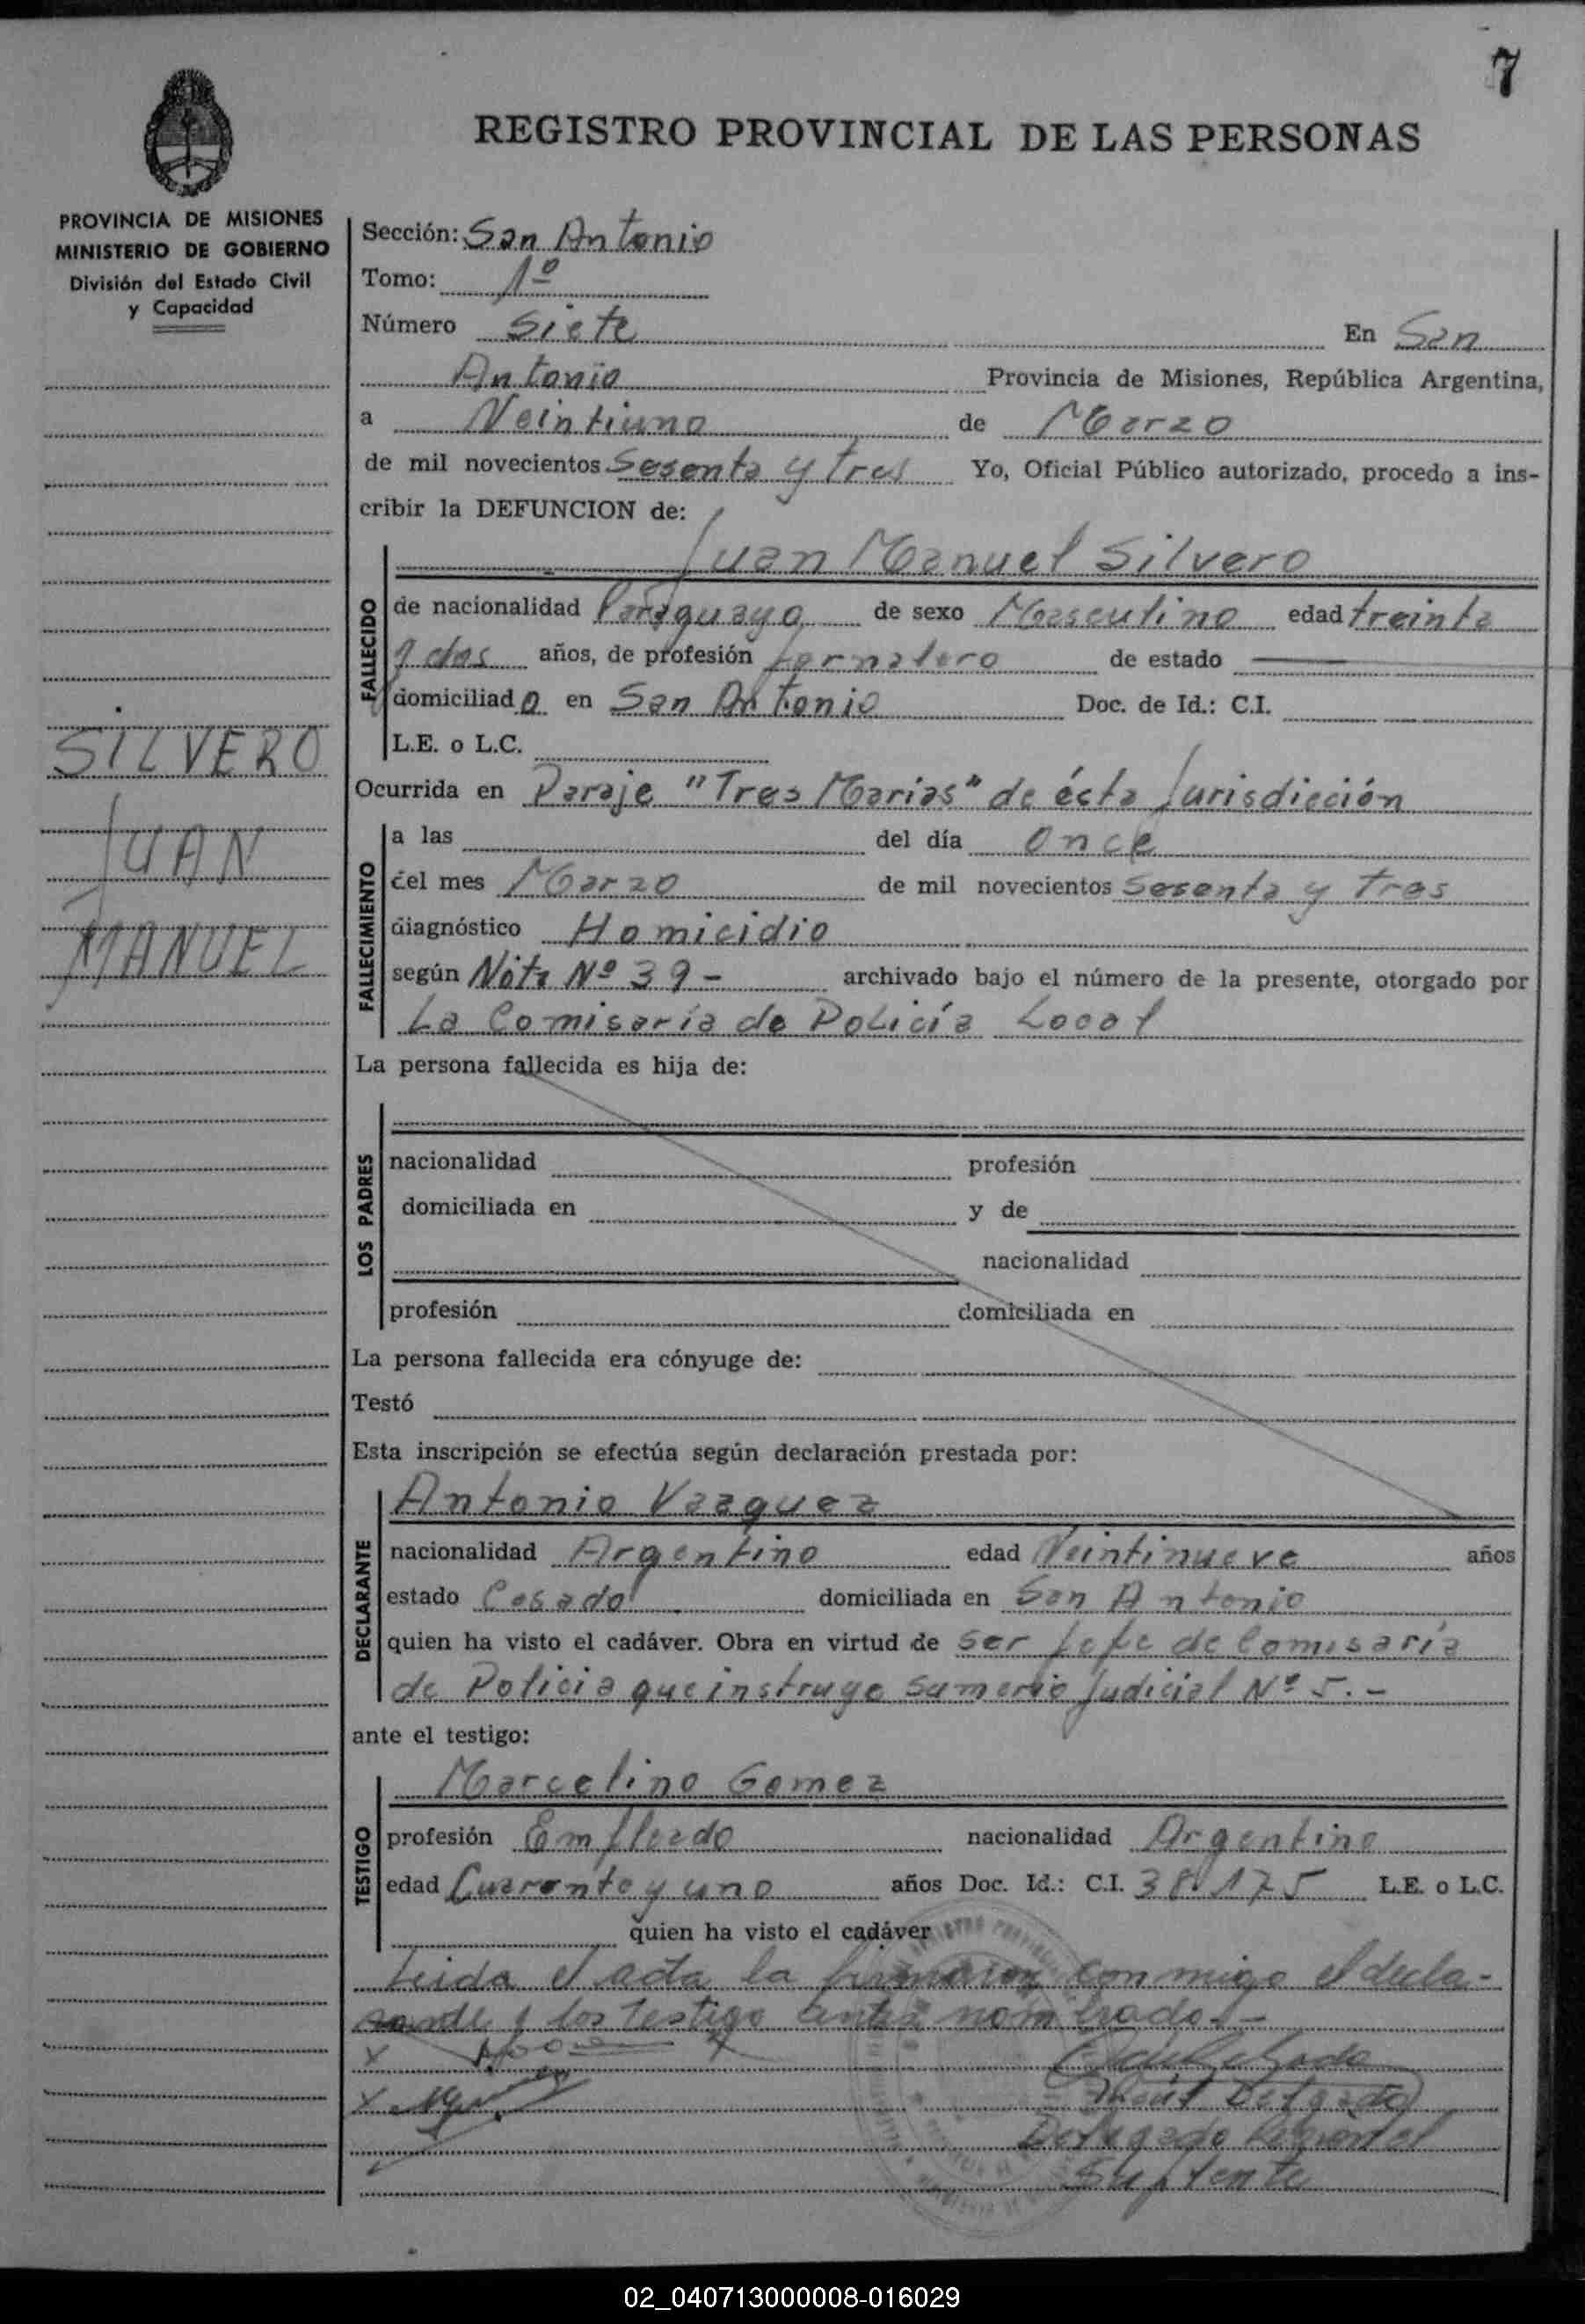 7
REGISTRO PROVINCIAL DE LAS PERSONAS
PROVINCIA DE MISIONES
MINISTERIO DE GOBIERNO
División del Estado Civil
y Capacidad
SILVERO
JUAN
MANUEL
Sección: San Antonio
Tomo: 1º
Número Siete En San
Antonio Provincia de Misiones, República Argentina,
a Veintiuno de Marzo
de mil novecientos Sesenta y tres Yo, Oficial Público autorizado, procedo a ins-
cribir la DEFUNCION de:
Juan Manuel Silvero
FALLECIDO
de nacionalidad Paraguayo de sexo Masculino edad treinta
y dos años, de profesión Jornalero de estado
domiciliado en San Antonio Doc. de Id.: C.I.
L.E. o L.C.
Ocurrida en Paraje "Tres Marias" de ésta Jurisdicción
FALLECIMIENTO
a las del día once
del mes Marzo de mil novecientos Sesenta y Tres
diagnóstico Homicidio
según Nota Nº 39 - archivado bajo el número de la presente, otorgado por
La Comisaría de Policía Local
La persona fallecida es hija de:
LOS PADRES
nacionalidad profesión
domiciliada en y de
nacionalidad
profesión domiciliada en
La persona fallecida era cónyuge de:
Testó
Esta inscripción se efectúa según declaración prestada por:
Antonio Vazquez
DECLARANTE
nacionalidad Argentino edad Veintinueve años
estado Casado domiciliada en San Antonio
quien ha visto el cadáver. Obra en virtud de ser Jefe de Comisaría
de Policia que instruye Sumario Judicial Nº 5.-
ante el testigo:
Marcelino Gomez
TESTIGO
profesión Empleado nacionalidad Argentino
edad Cuarenta y uno años Doc. Id.: C.I. 38.175 L.E. o L.C.
quien ha visto el cadáver
Leida el acta la firmaron con migo el decla-
rante y los testigo antes nombrados.-
Delgado
Delegado
Suplente
02_040713000008-016029